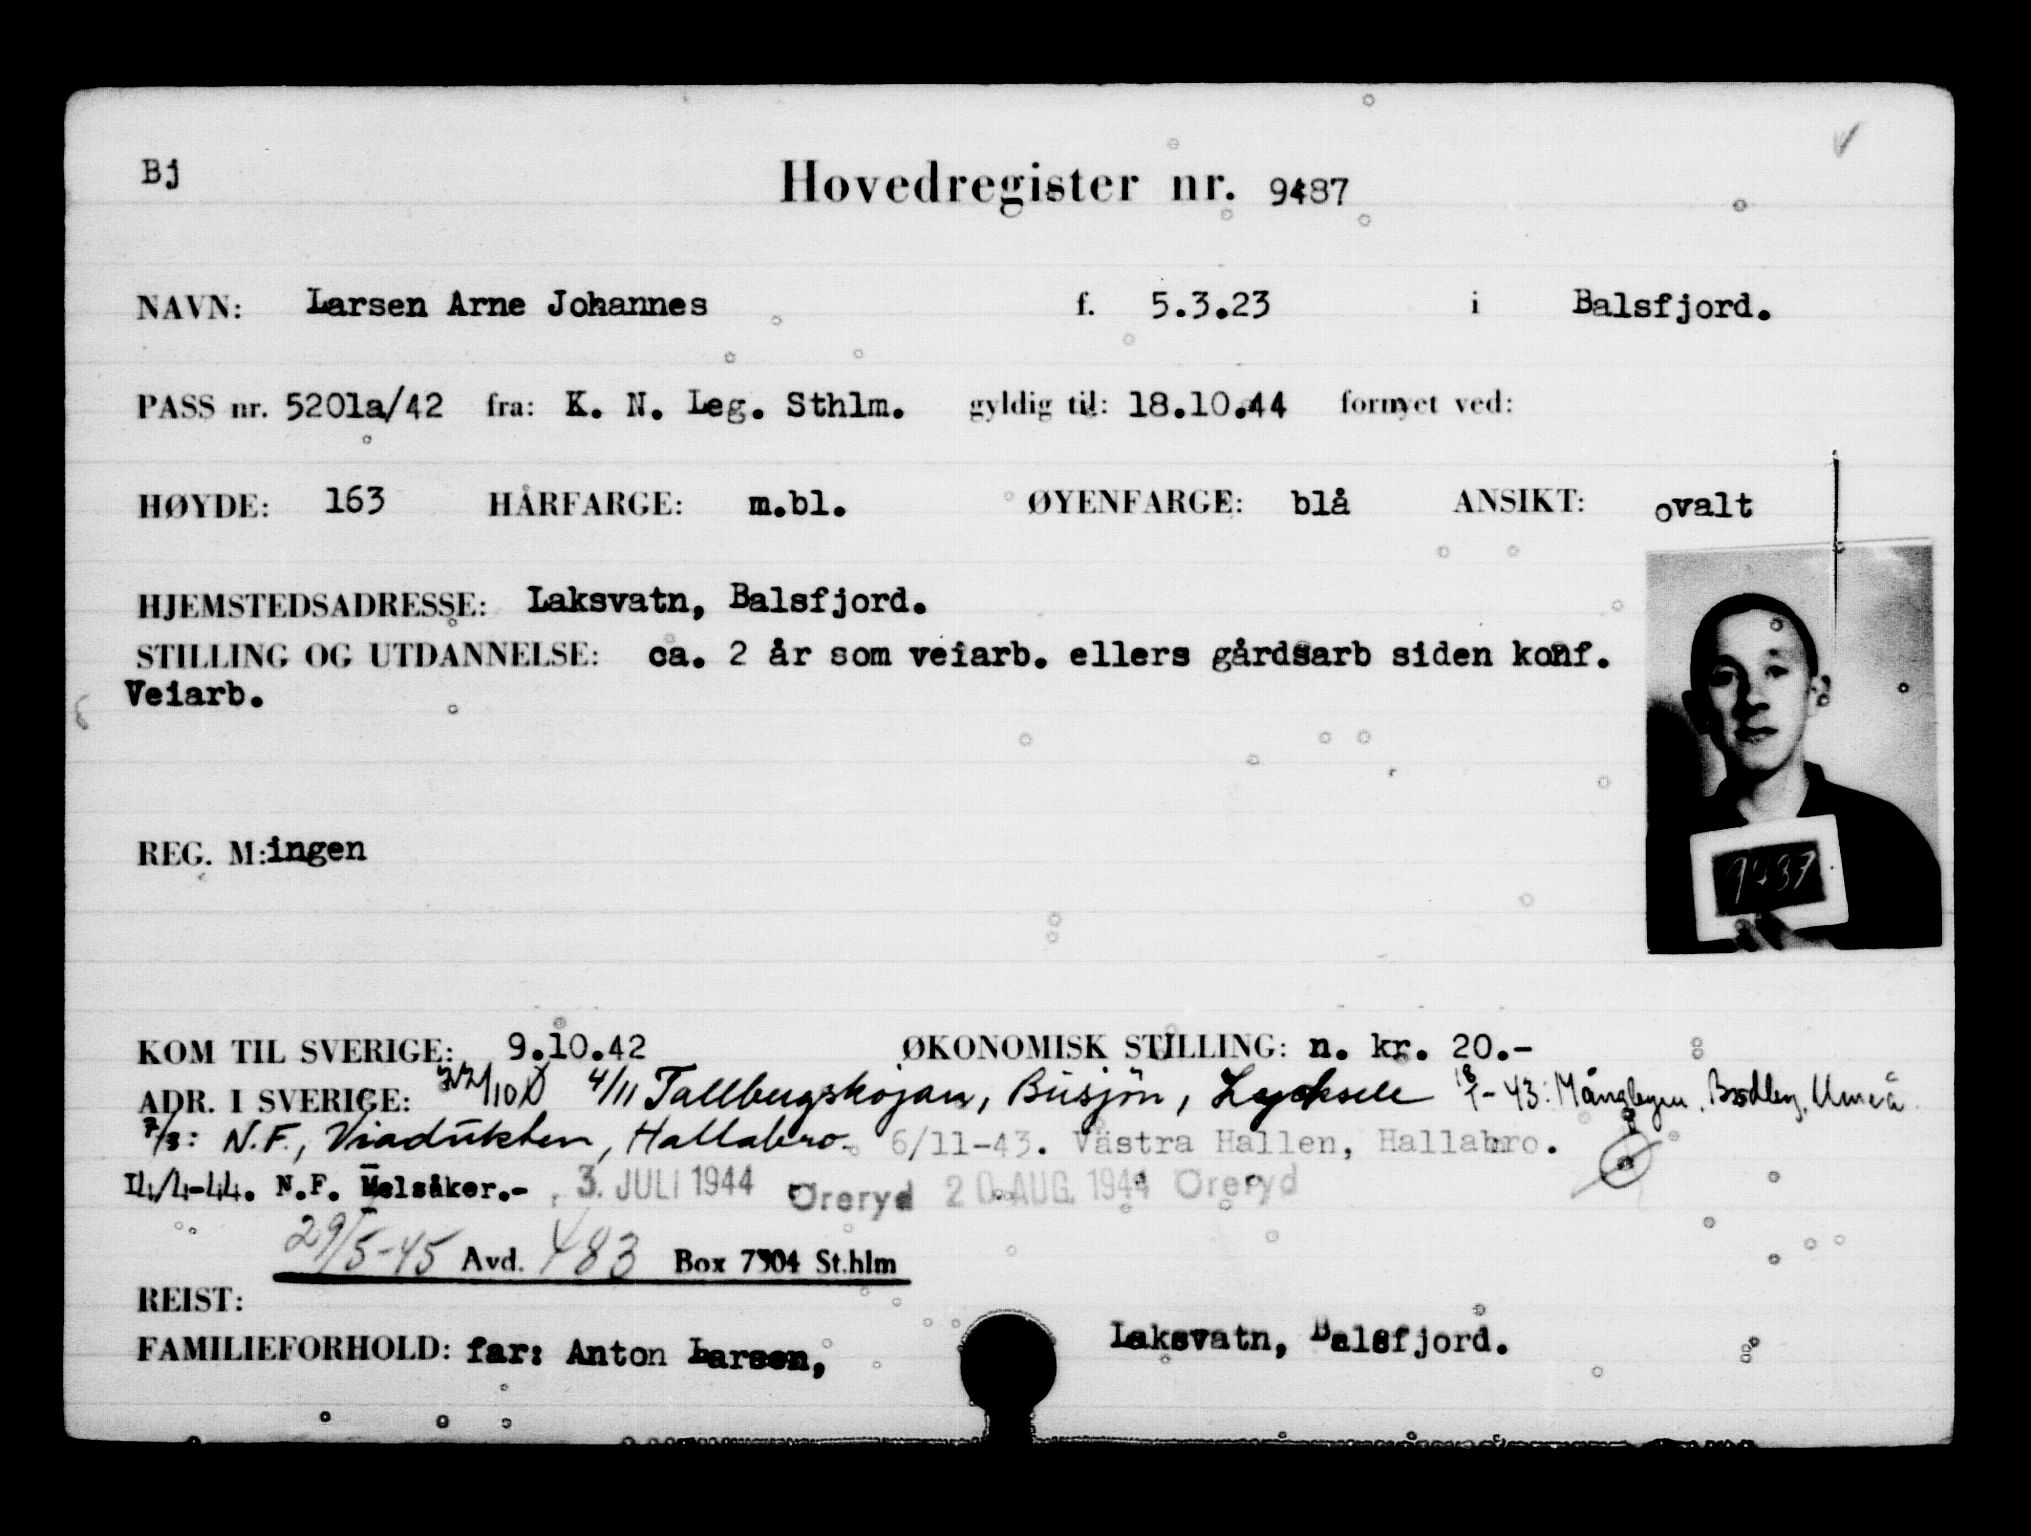 Bj
Hovedregister nr. 9487
NAVN: Larsen Arne Johannes f. 5.3.23 i Balsfjord.
PASS nr. 5201a/42 fra: K. N. Leg. Sthlm. gyldig til: 18.10.44 fornyet ved:
HØYDE: 163 HÅRFARGE: m.bl. ØYENFARGE: blå ANSIKT: ovalt
HJEMSTEDSADRESSE: Laksvatn, Balsfjord.
STILLING OG UTDANNELSE: ca. 2 år som veiarb. ellers gårdsarb siden konf.
Veiarb.
REG. M: ingen
KOM TIL SVERIGE: 9.10.42 ØKONOMISK STILLING: n. kr. 20.-
ADR. I SVERIGE: 22/10 Ö 4/11 Tallbergskojan, Busjön, Lycksele 18/1-43: Umeå
7/3: N.F., Viadukten, Hallabro. 6/11-43. Västra Hallen, Hallabro.
14/4-44. N.F. Mälsåker.- 3. JULI 1944 Öreryd 20. AUG. 1944 Öreryd
29/5-45 Avd. 483 Box 7304 St.hlm
REIST:
FAMILIEFORHOLD: far: Anton Larsen, Laksvatn, Balsfjord.